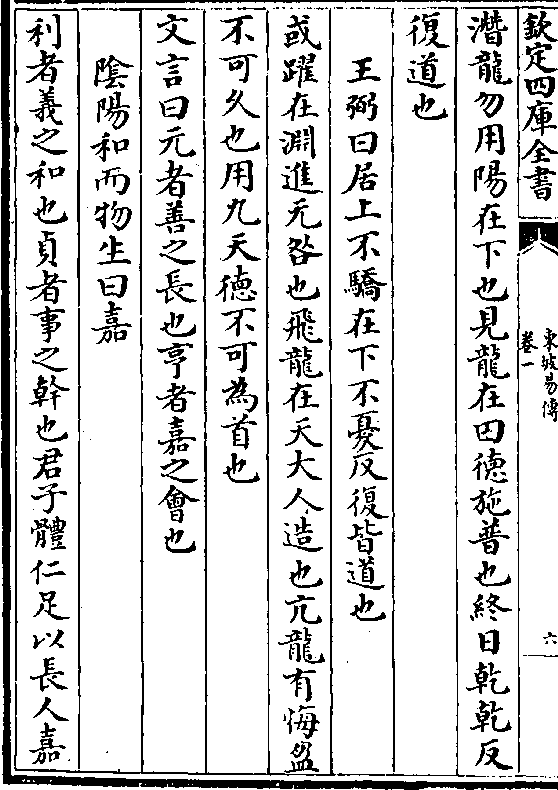 欽定四庫全書
東坡易傳
卷一
六
潛龍勿用陽在下也見龍在田德施普也終日乾乾反
復道也
王弼曰居上不驕在下不憂反復皆道也
或躍在淵進无咎也飛龍在天大人造也亢龍有悔盈
不可久也用九天德不可為首也
文言曰元者善之長也亨者嘉之會也
陰陽和而物生曰嘉
利者義之和也貞者事之幹也君子體仁足以長人嘉